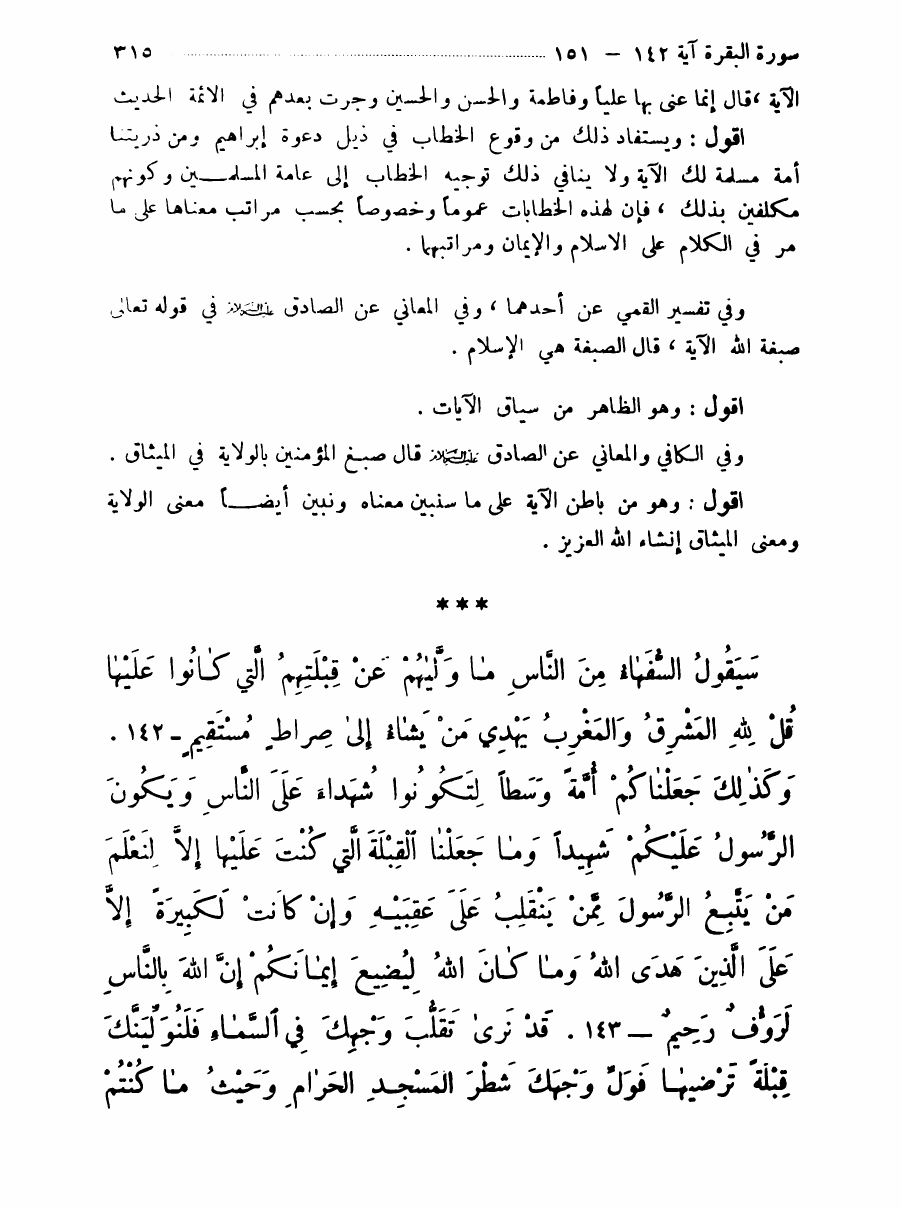 سورة البقرة آية ١٤٢ – ١٥١ ................................................ ٣١٥
الآية ، قال إنما عنى بها علياً وفاطمة والحسن والحسين وجرت بعدهم في الائمة الحديث
اقول : ويستفاد ذلك من وقوع الخطاب في ذيل دعوة إبراهيم ومن ذريتنا
أمة مسلمة لك الآية ولا ينافي ذلك توجيه الخطاب إلى عامة المسلمـــين وكونهم
مكلفين بذلك ، فإن لهذه الخطابات عموماً وخصوصاً بحسب مراتب معناها على ما
مر في الكلام على الاسلام والإيمان ومراتبهما .
وفي تفسير القمي عن أحدهما ، وفي المعاني عن الصادق عليه السلام في قوله تعالى
صبغة الله الآية ، قال الصبغة هي الإسلام .
اقول : وهو الظاهر من سياق الآيات .
وفي الكافي والمعاني عن الصادق عليه السلام قال صبغ المؤمنين بالولاية في الميثاق .
اقول : وهو من باطن الآية على ما سنبين معناه ونبين أيضـــاً معنى الولاية
ومعنى الميثاق إنشاء الله العزيز .
* * *
سَيَقُولُ السُّفَهَاءُ مِنَ النَّاسِ مَا وَلَّيٰهُمْ عَنْ قِبْلَتِهِمُ الَّتِي كَانُوا عَلَيْهَا
قُلْ لِلهِ المَشْرِقُ وَالمَغْرِبُ يَهْدِي مَنْ يَشَاءُ إِلىٰ صِراطٍ مُسْتَقِيمٍ - ١٤٢ .
وَكَذٰلِكَ جَعَلْنَاكُمْ أُمَّةً وَسَطاً لِتَكُونُوا شُهَداءَ عَلَىَ النَّاسِ وَيَكُونَ
الرَّسُولُ عَلَيْكُمْ شَهِيداً وَمَا جَعَلْنَا ٱلْقِبْلَةَ الَّتِي كُنْتَ عَلَيْهَا إِلاَّ لِنَعْلَمَ
مَنْ يَتَّبِعُ الرَّسُولَ مِمَّنْ يَنْقَلِبُ عَلَىَ عَقِبَيْهِ وَإِنْ كَانَتْ لَكَبِيرَةً إِلاَّ
عَلَىَ الَّذِينَ هَدَى اللهُ وَمَا كَانَ اللهُ لِيُضِيعَ إِيمَانَكُمْ إِنَّ اللهَ بِالنَّاسِ
لَرَؤُفٌ رَحِيمٌ – ١٤٣ . قَدْ نَرىٰ تَقَلُّبَ وَجْهِكَ فِي ٱلسَّمَاءِ فَلَنُوَلِّيَنَّكَ
قِبْلَةً تَرْضٰيهَا فَوَلِّ وَجْهَكَ شَطْرَ المَسْجِدِ الحَرَامِ وَحَيْثُ مَا كُنْتُمْ